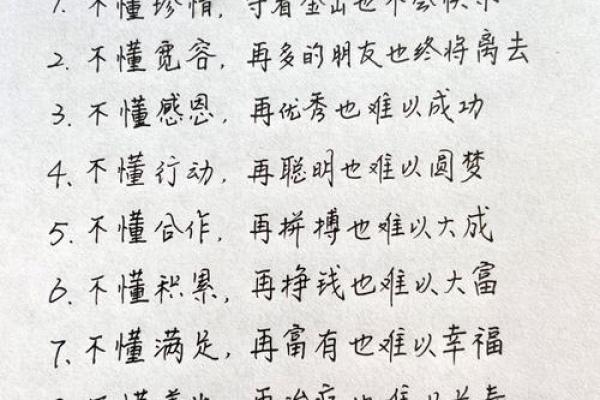 1. 不懂珍惜，守着金山也不会快乐
2. 不懂宽容，再多的朋友也终将离去
3. 不懂感恩，再优秀也难以成功
4、不懂行动，再聪明也难以圆梦
5. 不懂合作，再拼搏也难以大成
6. 不懂积累，再挣钱也难以大富
7、不懂满足，再富有也难以幸福
不懂养生，再治疗也难以长寿